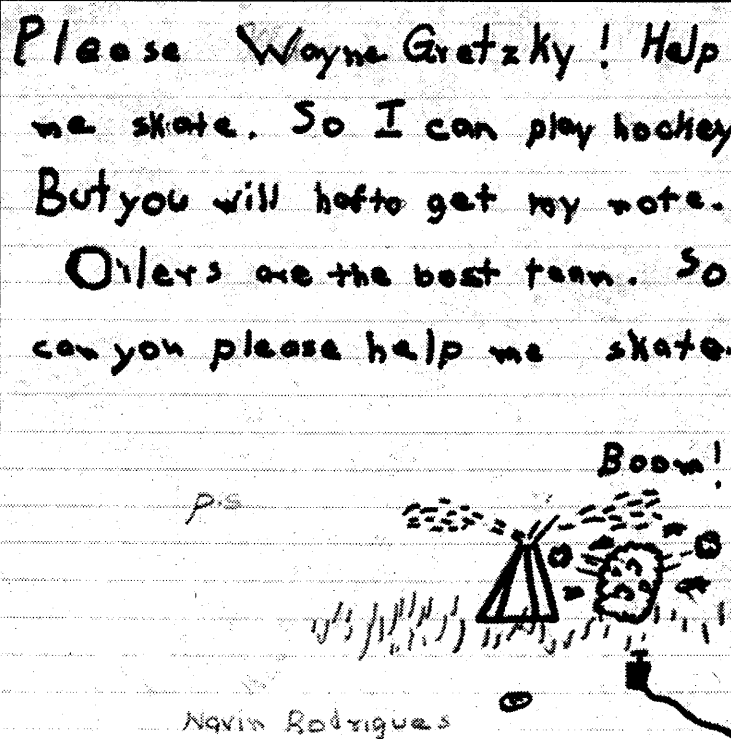 Please Wayne Gretzky! Help
me skate. So I can play hockey
But you will hafto get my note.
Oilers are the best team. So
can you please help me skate.
Boom!
P.S
Navin Rodrigues